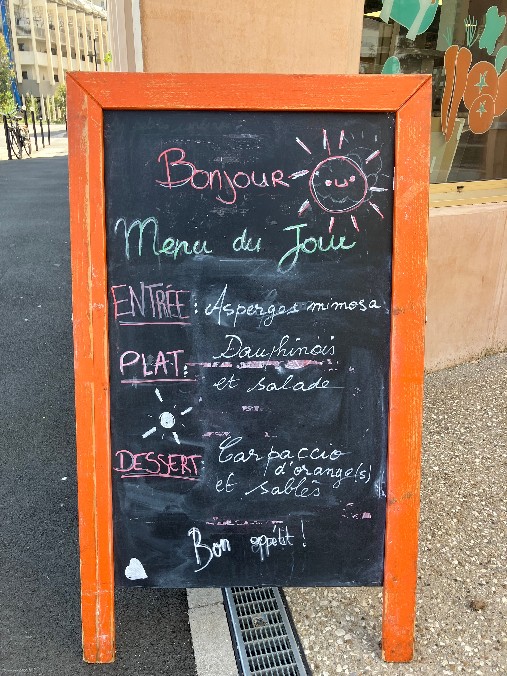 Bonjour
Menu du Jour
ENTRÉE : Asperges mimosa
PLAT : Dauphinois
et salade
DESSERT : Carpaccio
d'orange(s)
et sablés
Bon appétit !